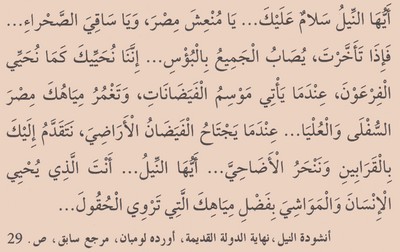 أَيُّهَا النِّيلُ سَلَامٌ عَلَيْكَ... يَا مُنْعِشَ مِصْرَ، وَيَا سَاقِيَ الصَّحْرَاءِ...
فَإِذَا تَأَخَّرْتَ، يُصَابُ الْجَمِيعُ بِالْبُؤْسِ... إِنَّنَا نُحَيِّيكَ كَمَا نُحَيِّي
الْفِرْعَوْنَ، عِنْدَمَا يَأْتِي مَوْسِمُ الْفَيَضَانَاتِ، وَتَغْمُرُ مِيَاهُكَ مِصْرَ
السُّفْلَى وَالْعُلْيَا... عِنْدَمَا يَجْتَاحُ الْفَيَضَانُ الْأَرَاضِيَ، نَتَقَدَّمُ إِلَيْكَ
بِالْقَرَابِينِ وَنَنْحَرُ الْأَضَاحِيَّ... أَيُّهَا النِّيلُ... أَنْتَ الَّذِي يُحْيِي
الْإِنْسَانَ وَالْمَوَاشِيَ بِفَضْلِ مِيَاهِكَ الَّتِي تَرْوِي الْحُقُولَ...
أنشودة النيل، نهاية الدولة القديمة، أورده لومبان، مرجع سابق، ص. 29